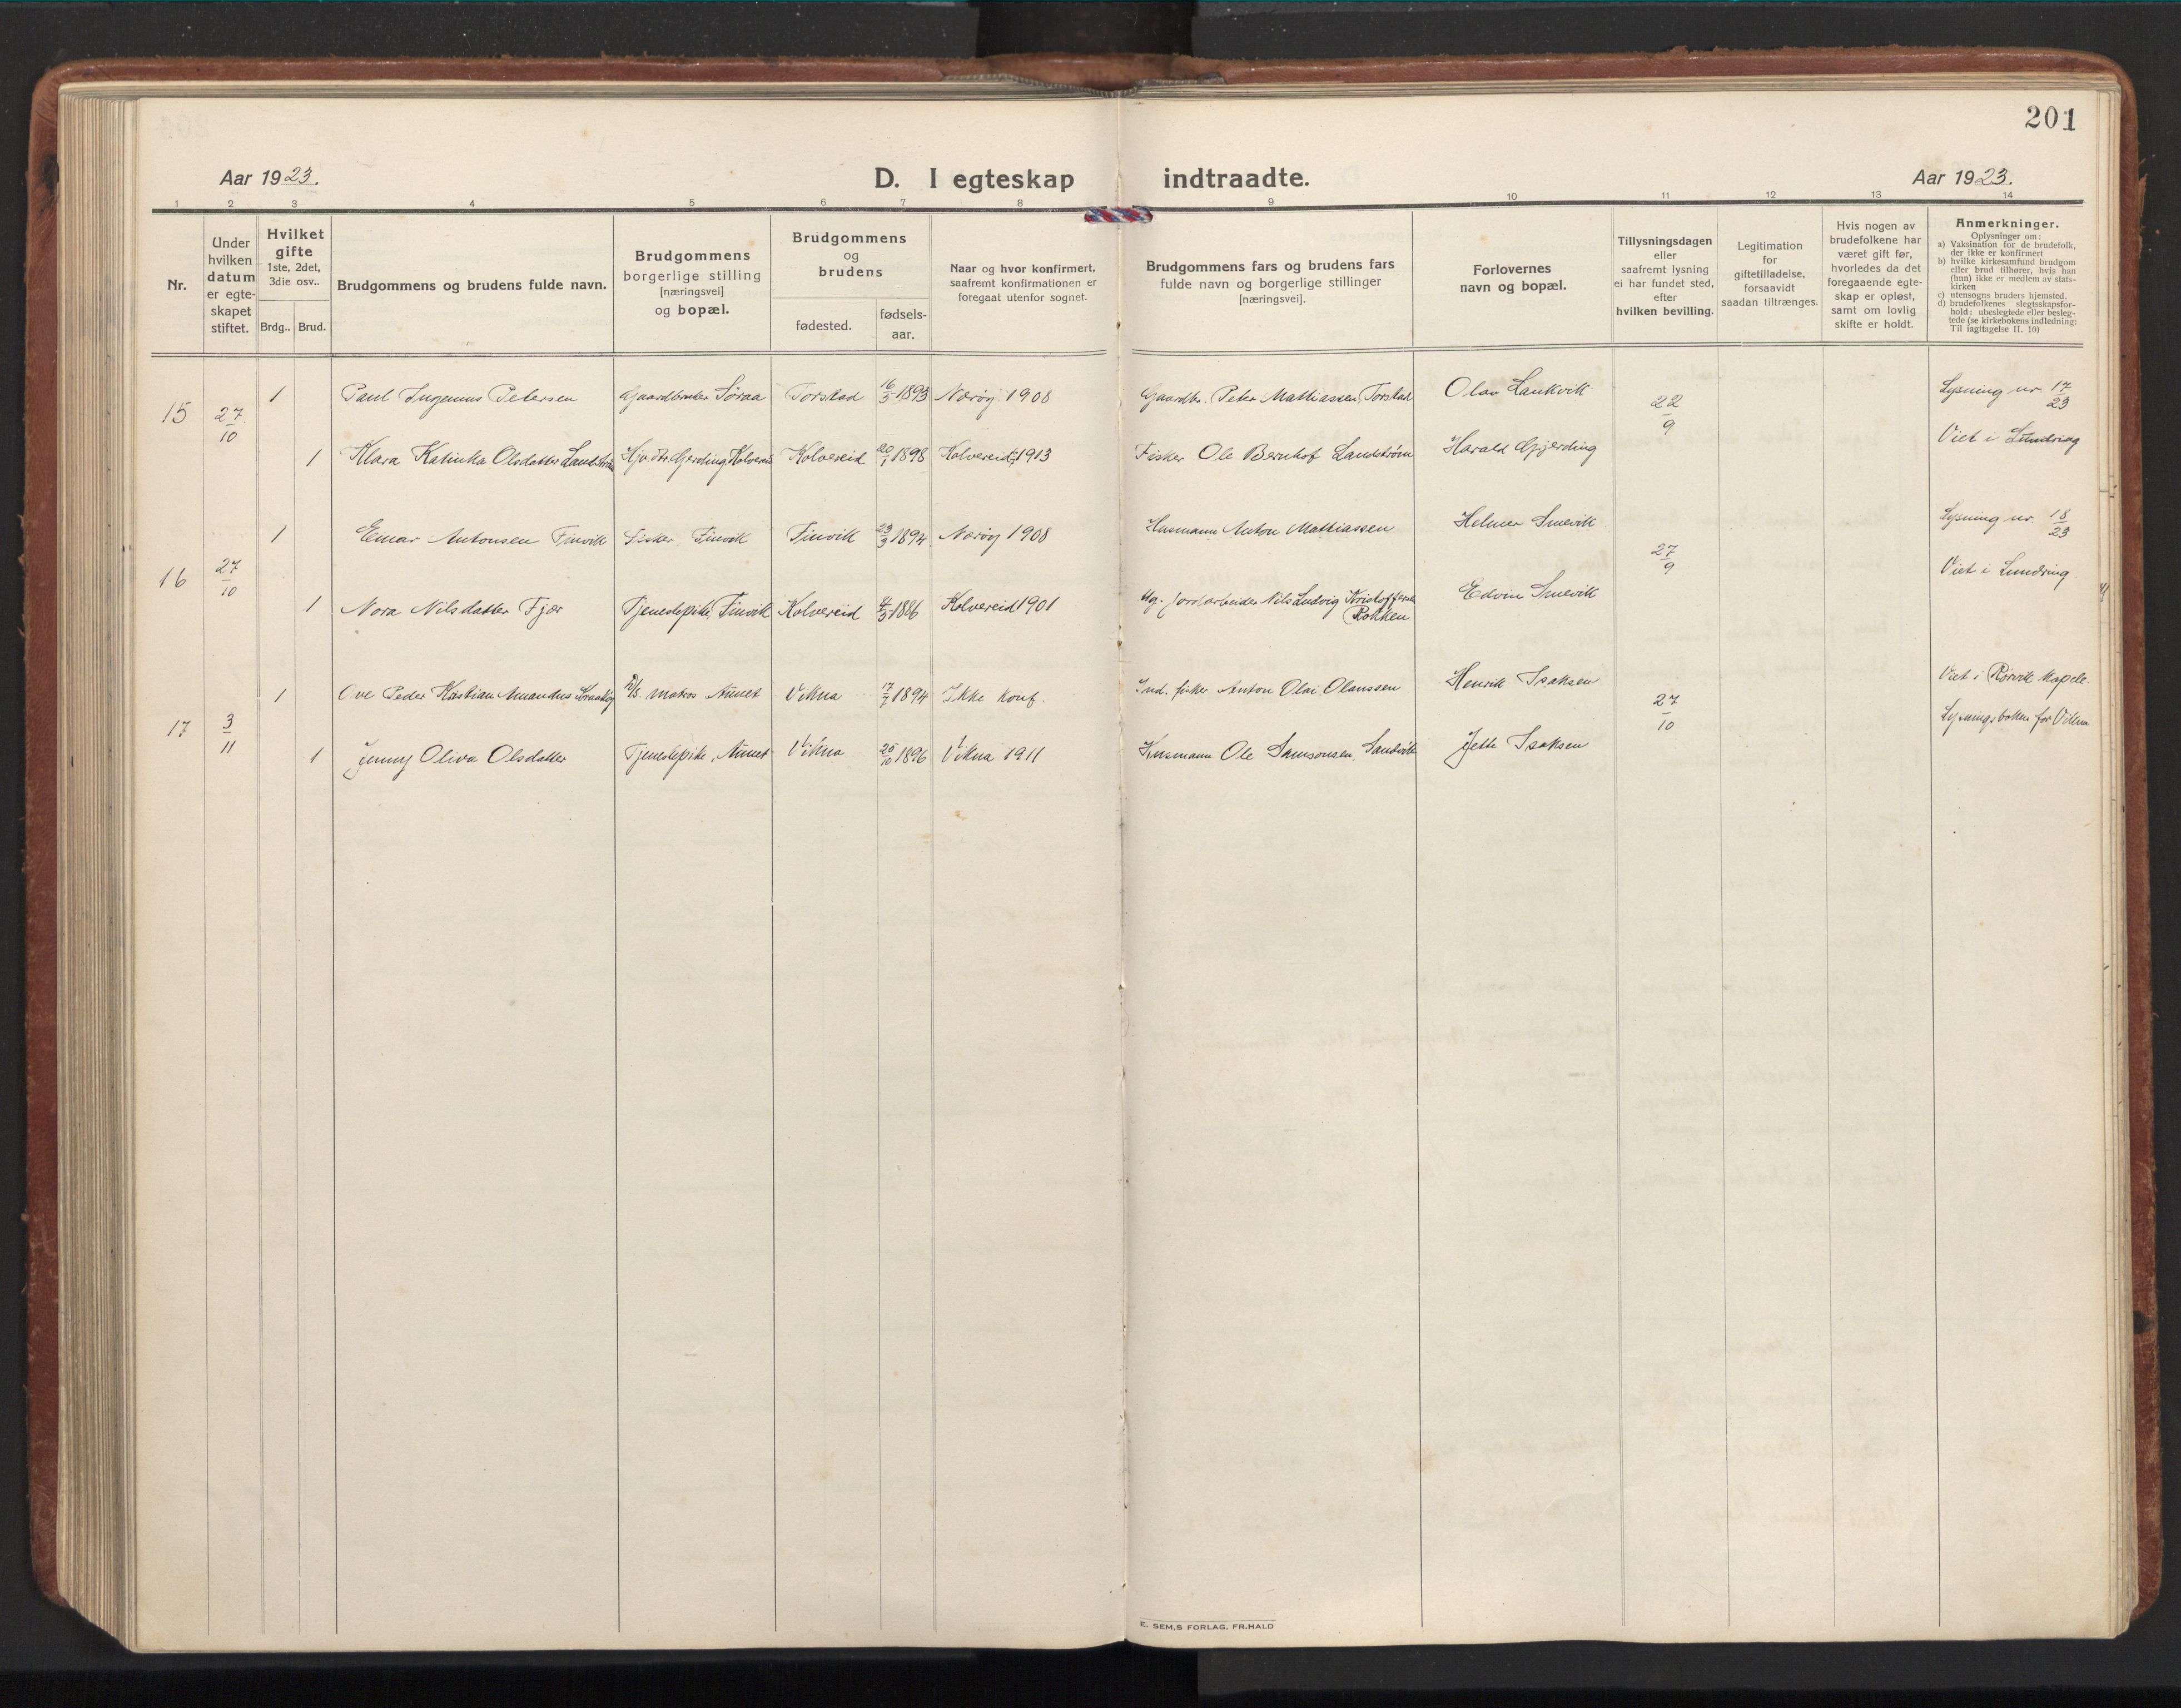 201
Aar 1923. D. I egteskap indtraadte. Aar 1923.
1 2 3 4 5 6 7 8 9 10 11 12 13 14
Nr.
Under
hvilken
datum
er egte-
skapet
stiftet.
Hvilket
gifte
1ste, 2det,
3die osv..
Brdg.. Brud.
Brudgommens og brudens fulde navn.
Brudgommens
borgerlige stilling
[næringsvei]
og bopæl.
Brudgommens
og
brudens
fødested.
fødsels-
aar.
Naar og hvor konfirmert,
saafremt konfirmationen er
foregaat utenfor sognet.
Brudgommens fars og brudens fars
fulde navn og borgerlige stillinger
[næringsvei].
Forlovernes
navn og bopæl.
Tillysningsdagen
eller
saafremt lysning
ei har fundet sted,
efter
hvilken bevilling.
Legitimation
for
giftetilladelse,
forsaavidt
saadan tiltrænges.
Hvis nogen av
brudefolkene har
været gift før,
hvorledes da det
foregaaende egte-
skap er opløst,
samt om lovlig
skifte er holdt.
Anmerkninger.
Oplysninger om:
a) Vaksination for de brudefolk,
der ikke er konfirmert
b) hvilke kirkesamfund brudgom
eller brud tilhører, hvis han
(hun) ikke er medlem av stats-
kirken
c) utensogns bruders hjemsted.
d) brudefolkenes slegtsskapsfor-
hold: ubeslegtede eller besleg-
tede (se kirkebokens indledning:
Til iagttagelse II. 10)
15 27/10 1 Paul Ingemus Petersen Gaardbruker Søraa Torstad 16/5 1893 Nærøy 1908 Gaardbr. Peter Mathiassen Torstad Olav Laukvik 22/9 Lysning nr. 17/23
1 Klara Katinka Olsdatter Kolvereid 1898 Kolvereid 1913 Fisker Ole Bernhof Landstrøm Harald Gjerding Viet i Lundring
16 27/10 1 Einar Antonsen Finvik Fisker Finvik Finvik 1894 Nærøy 1908 Husmann Anton Mathiassen Helmer Smevik 27/9 Lysning nr. 18/23
1 Nora Nilsdatter Fjær Tjenestepike, Finvik Kolvereid 1886 Kolvereid 1901 Nils Ludvig Edvin Smevik Viet i Lundring
17 3/11 1 Ove Peder Kristian Amandus matros Vikna 17/7 1894 Ikke konf. Ind. fisker Anton Olai Olaussen Henrik Isaksen 27/10 Viet i Rørvik kapele
1 Jenny Oliva Olsdatter Tjenestepike, Vikna 1896 Vikna 1911 Husmann Ole Samsonsen, Sandvik Jette Isaksen Lysningsboken for Vikna
E. SEM.S FORLAG, FR.HALD